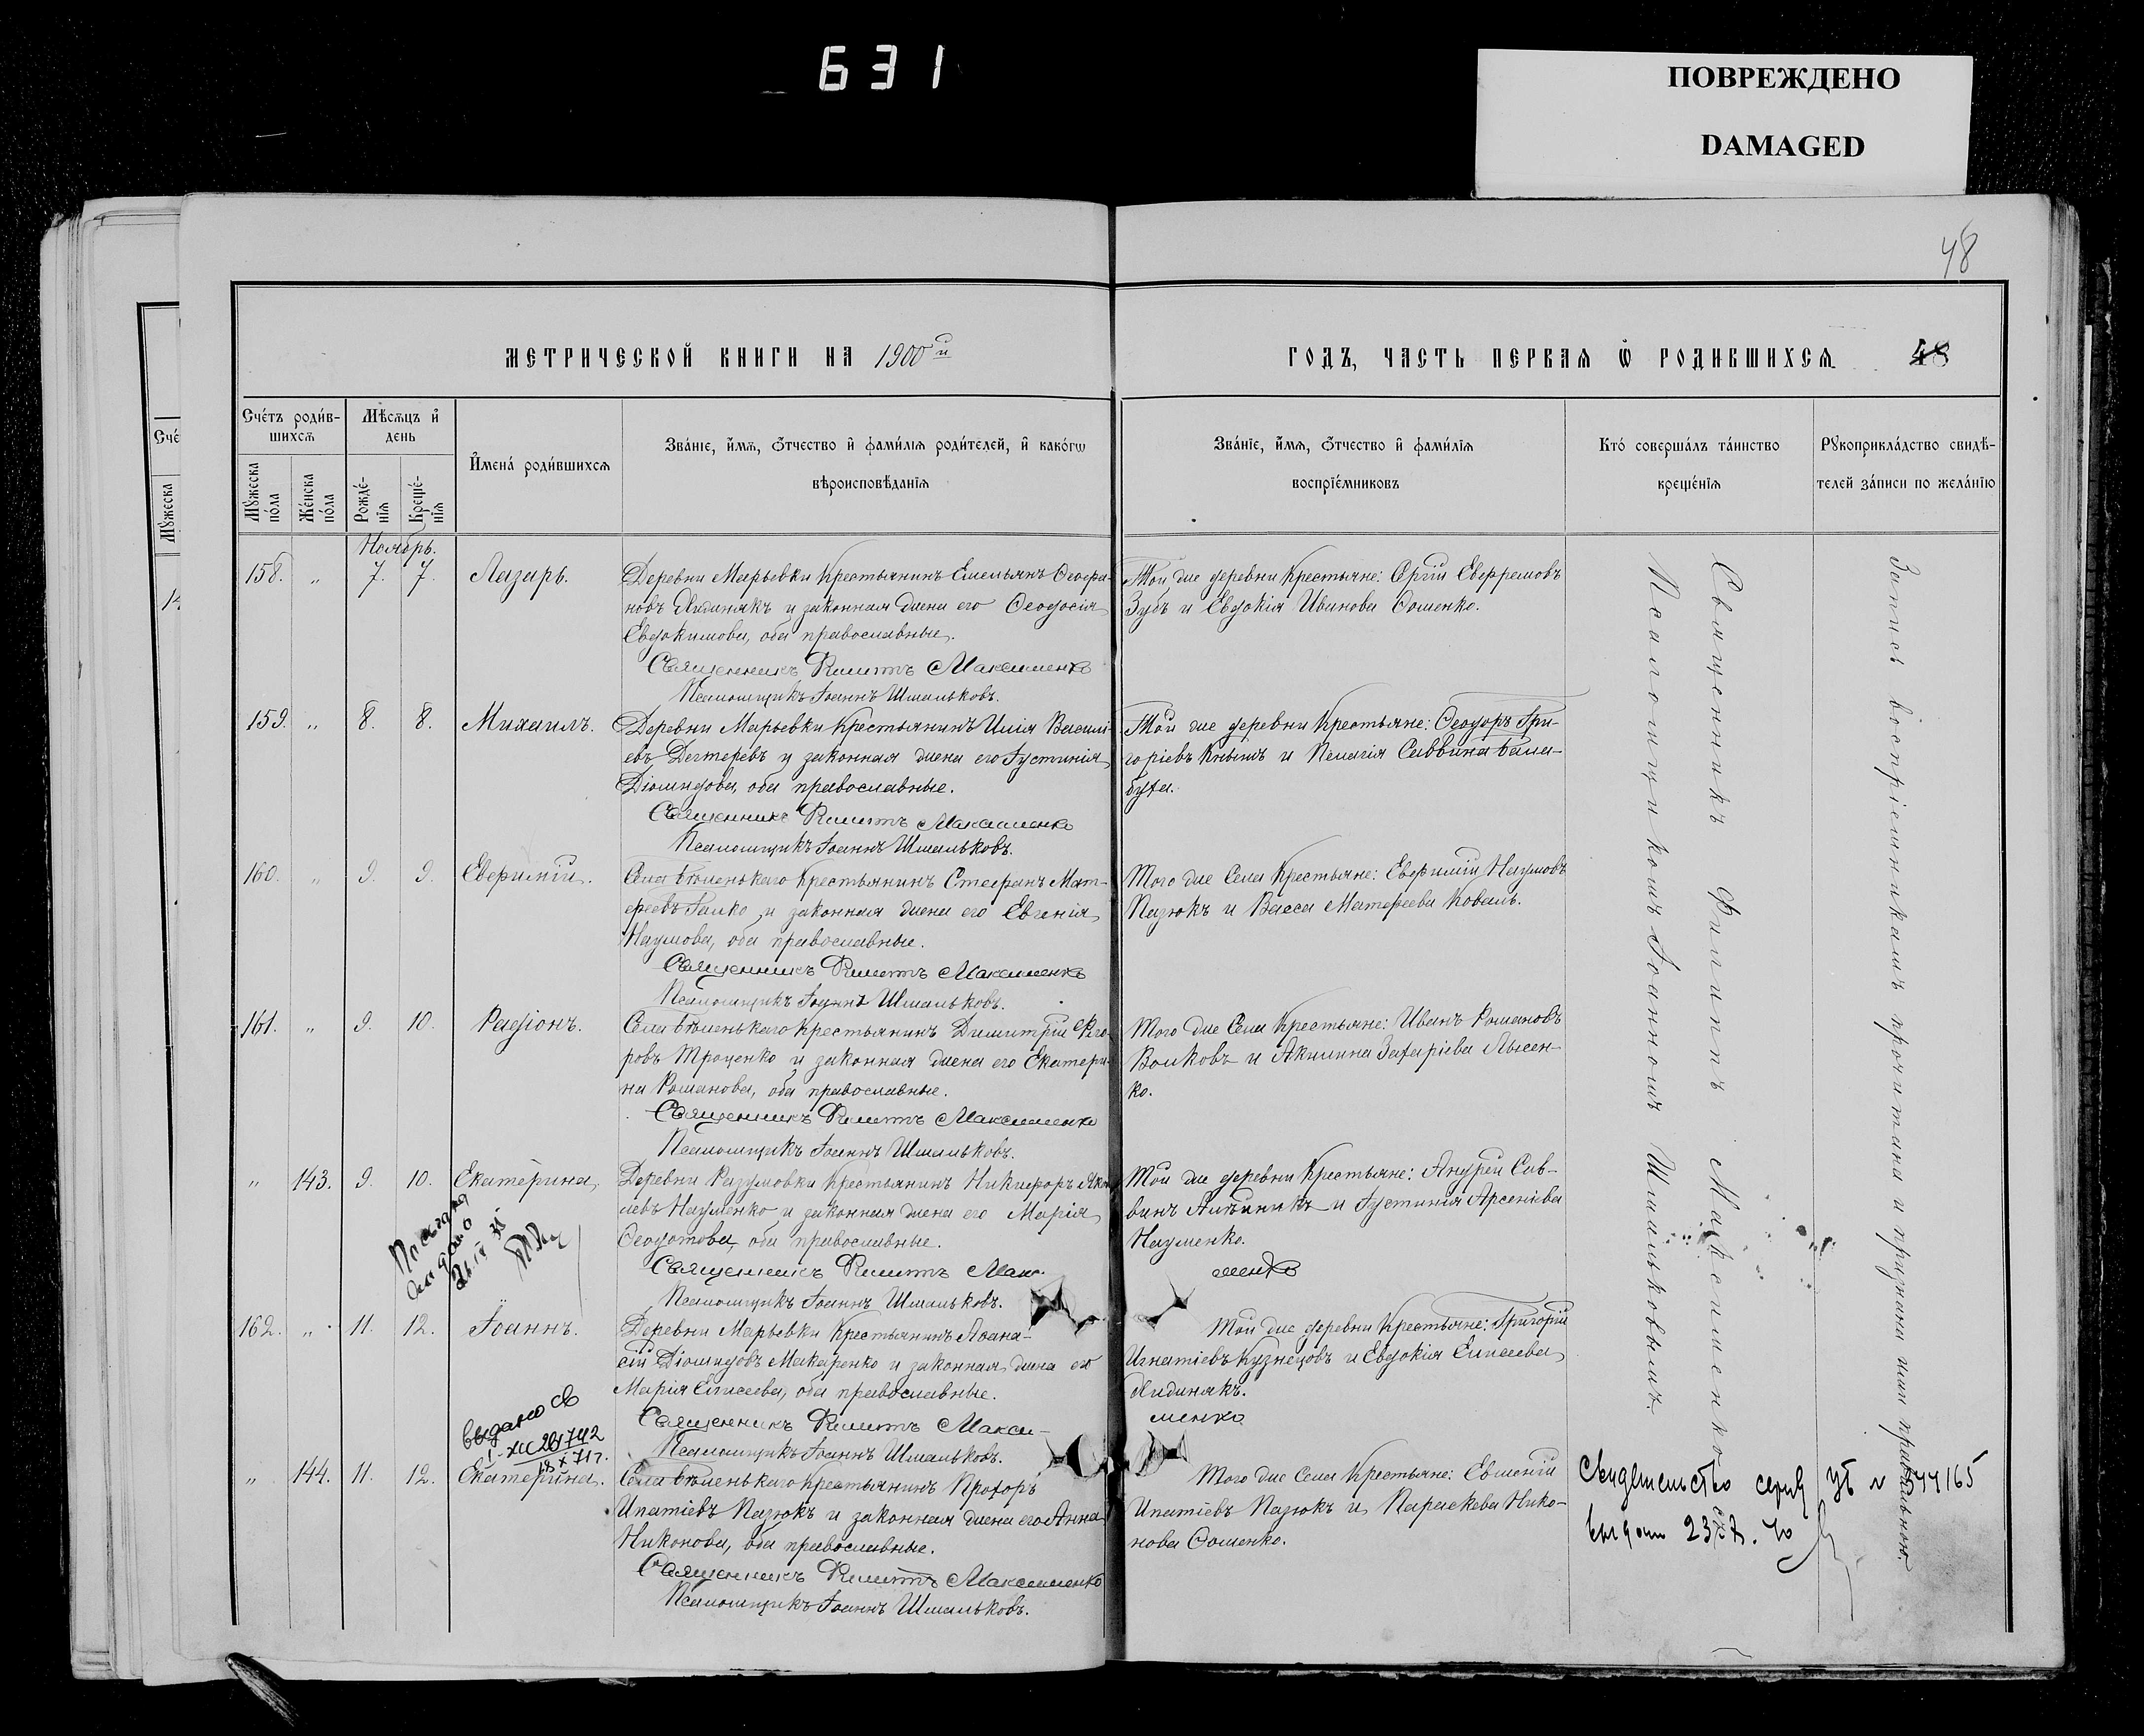 631
ПОВРЕЖДЕНО
DAMAGED
48
МЕТРИЧЕСКОЙ КНИГИ НА 1900й
ГОДЪ, ЧАСТЬ ПЕРВАЯ Ѿ РОДИВШИХСѦ
48
Сче́тъ роди́в-
шихсѧ
Мѣ́сѧцъ и҆
день
И҆мена́ роди́вшихсѧ
Зва́нїе, и҆́мѧ, ѻ҆́тчество и҆ фами́лїѧ роди́телей, и҆ како́гѡ
вѣроисповѣ́данїѧ
Мꙋ́жеска
по́ла
Же́нска
по́ла
Рожде́-
нїѧ
Креще́-
нїѧ
Зва́нїе, и҆́мѧ, ѻ҆́тчество и҆ фами́лїѧ
воспрїе́мниковъ
Кто́ соверша́лъ та́инство
креще́нїѧ
Рꙋкоприкла́дство свидѣ́-
телей за́писи по жела́нїю
Ноябрь.
158. „ 7. 7. Лазарь.
Деревни Марьевки крестьянинъ Емельянъ Ѳеофа-
новъ Жидинякъ и законная жена его Ѳеодосія
Евдокимова, оба православные.
Священникъ Филиппъ Максименко
Псаломщикъ Іоаннъ Шмальковъ.
Той же деревни крестьяне: Сергій Евфремовъ
Зубъ и Евдокія Иванова Сошенко.
159. „ 8. 8. Михаилъ.
Деревни Марьевки крестьянинъ Илія Василі-
евъ Дегтеревъ и законная жена его Іустинія
Діомидова, оба православные.
Священникъ Филиппъ Максименко
Псаломщикъ Іоаннъ Шмальковъ.
Той же деревни крестьяне: Ѳеодоръ Гри-
горіевъ Кнышъ и Пелагія Саввина Бала-
буха.
160. „ 9. 9. Евфимій.
Села Бѣленькаго крестьянинъ Стефанъ Мат-
феевъ Галко и законная жена его Евгенія
Наумова, оба православные.
Священникъ Филиппъ Максименко
Псаломщикъ Іоаннъ Шмальковъ.
Того же Села крестьяне: Евфимій Наумовъ
Пазюкъ и Васса Матфеева Коваль.
161. „ 9. 10. Радіонъ.
Села Бѣленькаго крестьянинъ Димитрій Його-
ровъ Троценко и законная жена его Екатери-
на Романова, оба православные.
Священникъ Филиппъ Максименко
Псаломщикъ Іоаннъ Шмальковъ.
Того же Села крестьяне: Иванъ Романовъ
Волковъ и Акилина Захаріева Лысен-
ко.
„ 143. 9. 10. Екатерина,
Деревни Разумовки крестьянинъ Никифоръ Яков-
левъ Науменко и законная жена его Марія
Ѳеодотова, оба православные.
Священникъ Филиппъ Макси-
Псаломщикъ Іоаннъ Шмальковъ.
Той же деревни крестьяне: Андрей Сав-
винъ и Іустинія Арсеніева
Науменко.
менко
162. „ 11. 12. Іоаннъ.
Деревни Марьевки крестьянинъ Аѳана-
сій Діомидовъ Макаренко и законная жена его
Марія Елисеева, оба православные.
Священникъ Филиппъ Макси-
Псаломщикъ Іоаннъ Шмальковъ.
Той же деревни крестьяне: Григорій
Игнатіевъ Кузнецовъ и Евдокія Елисеева
Жидинякъ.
менко
выдано св
„ 144. 11. 12. Екатерина.
Села Бѣленькаго крестьянинъ Прохоръ
Ипатіевъ Пазюкъ и законная жена его Анна
Никонова, оба православные.
Священникъ Филиппъ Максименко
Псаломщикъ Іоаннъ Шмальковъ.
Того же Села крестьяне: Евменій
Ипатіевъ Пазюкъ и Параскева Нико-
нова Сошенко.
Священникъ Филиппъ Максименко съ
Псаломщикомъ Іоанномъ Шмальковымъ.
Запись воспріемникамъ прочитана и признана ими правильною.
Свидетельство